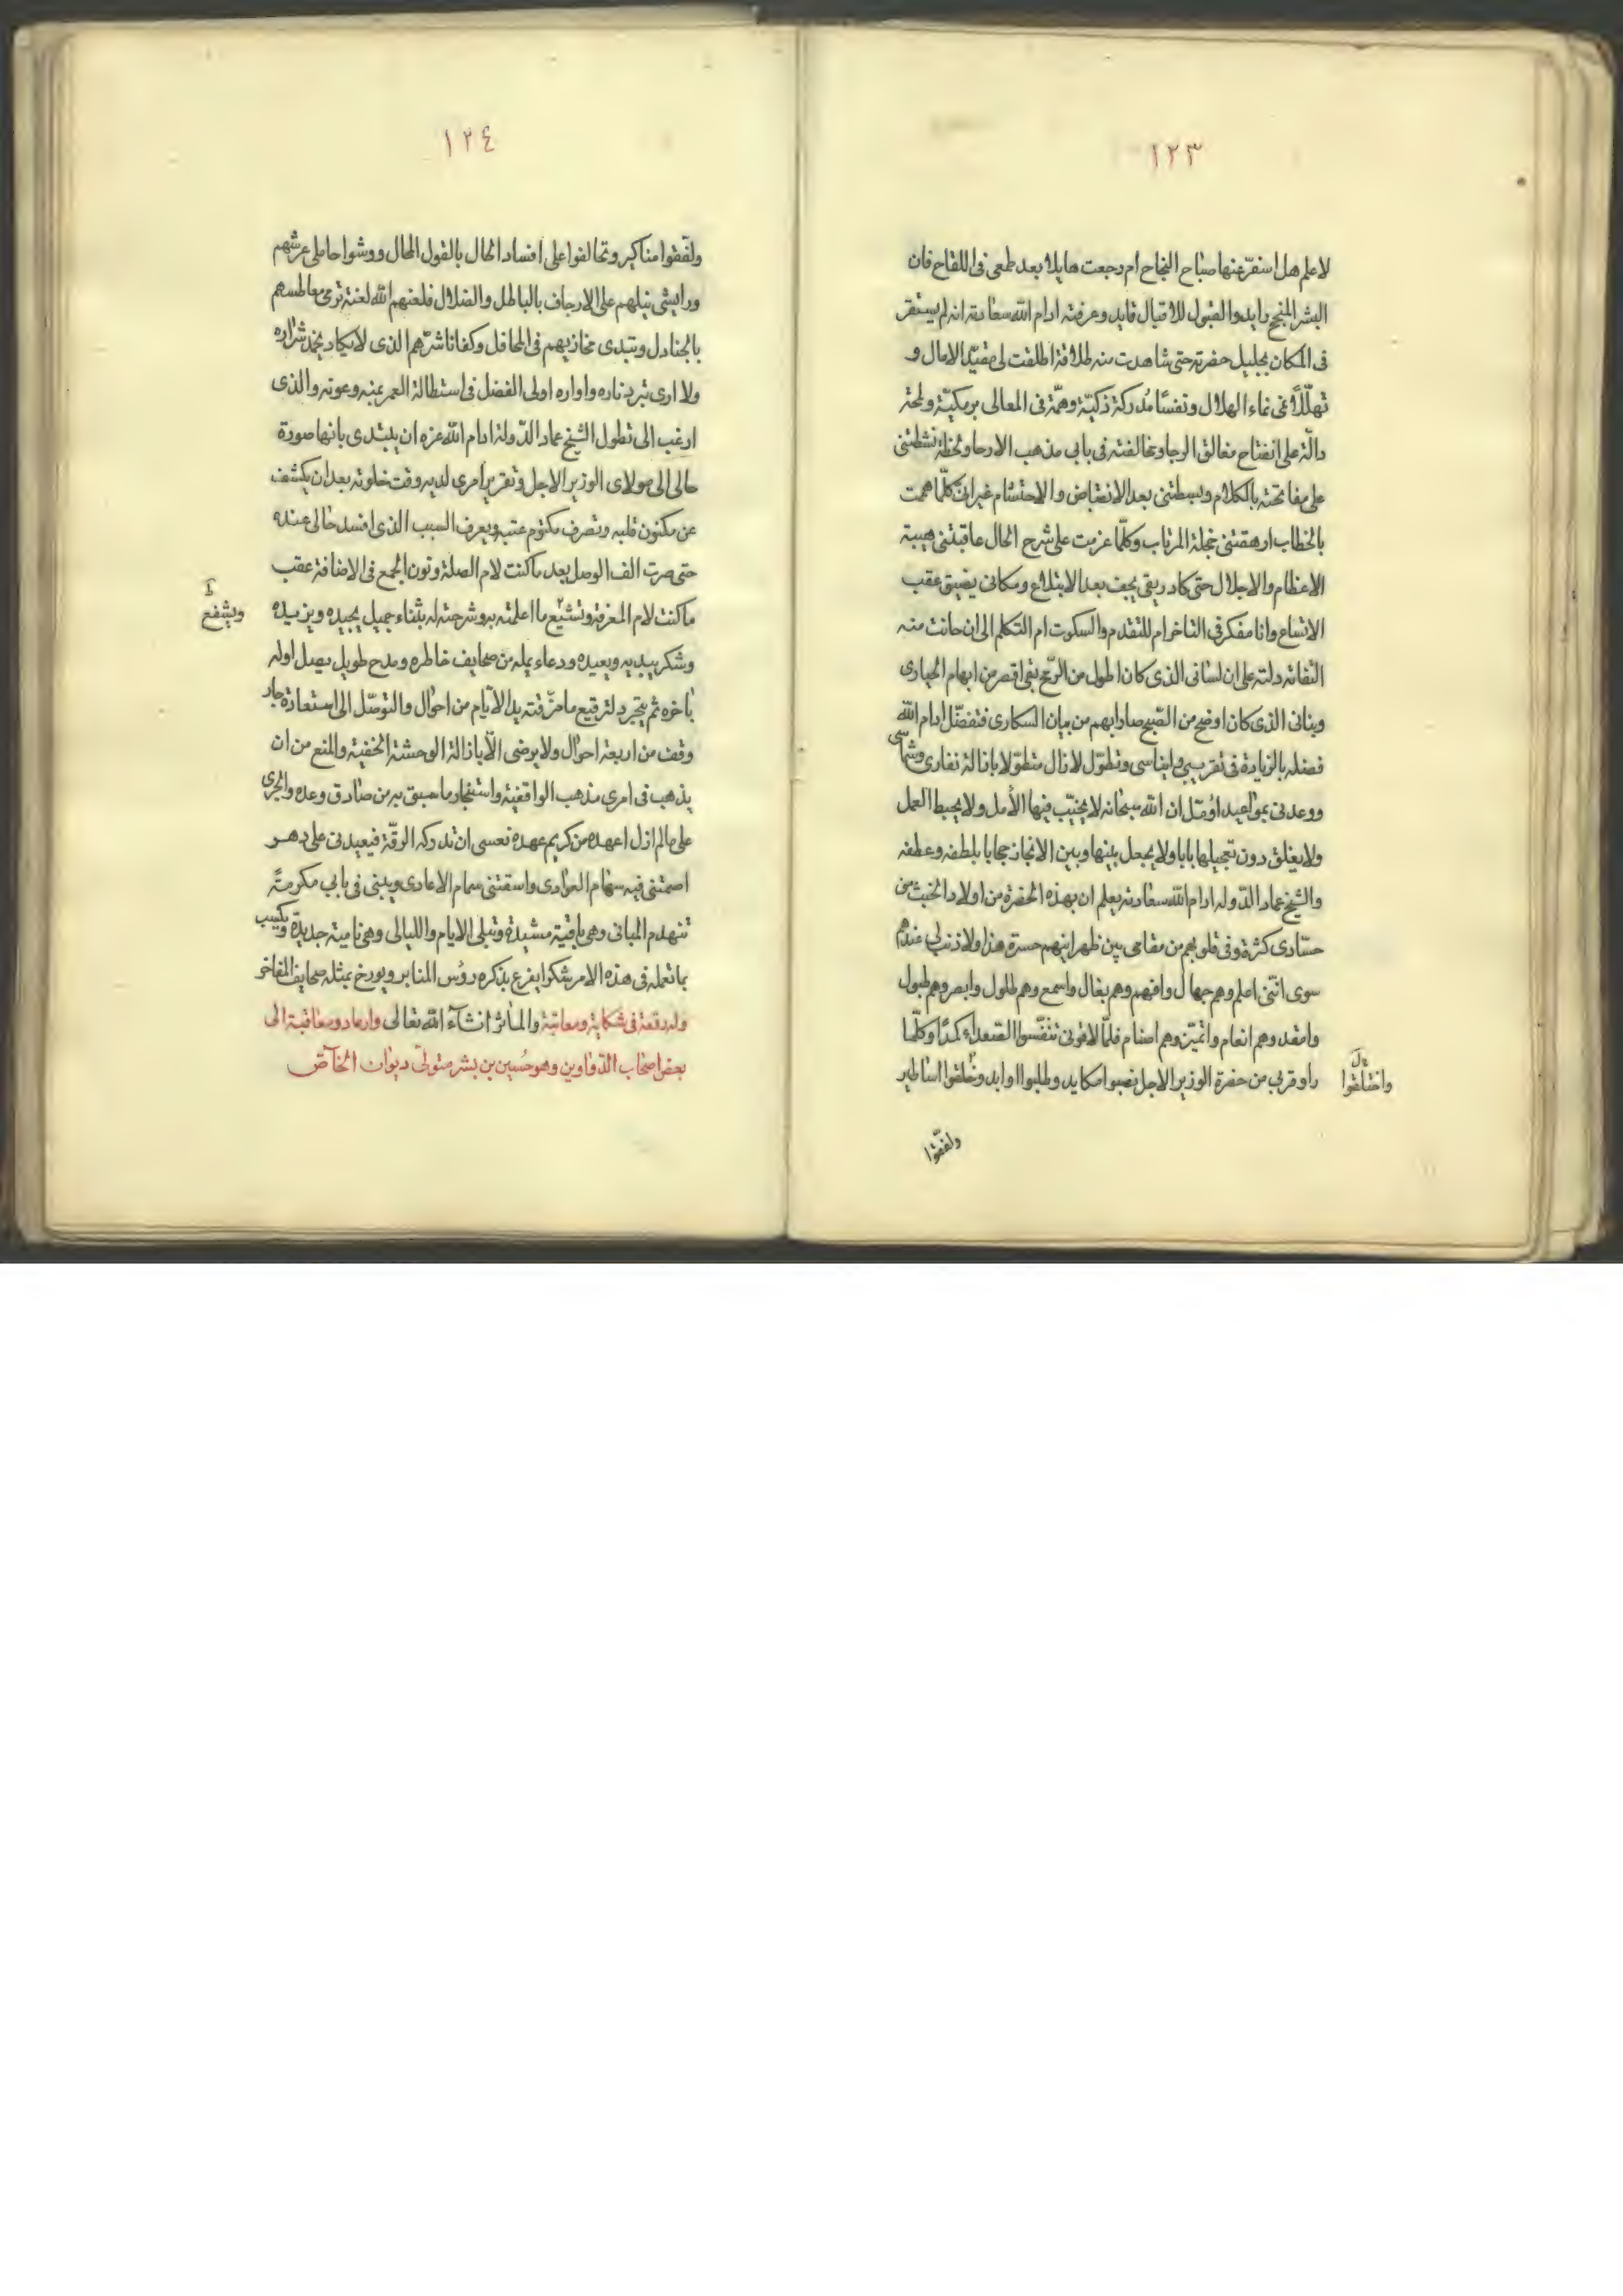 ١٢٣
لاعلم هل اسفرّ عنها صباح النجاح ام رجعت هايلا بعد طمعى فى اللقاح فان
البشر المنجح رايد والقبول للاقبال قايد وعرفته ادام الله سعادته انه لم يستقر
فى المكان بجليل حضرته حتى شاهدت منه طلاقة اطلقت لى مقيّد الامال و
تهلّلاً غى نماء الهلال ونفسًا مُدركة ذكيّة وهمّة فى المعالى برمكيّة ولمحة
دالّة على انفتاح مغالق الرجا ومخالفته فى بابى مذهب الارجا ولحظة نشطتنى
على مفاتحته بالكلام وبسطتنى بعد الانقباض والاحتشام غير ان كلّما هممت
بالخطاب ارهقتنى خجلة المرتاب وكلّما عزمت على شرح الحال عاقبتنى هيبة
الاعظام والاجلال حتى كاد ريقى يجف بعد الابتلاع ومكانى يضيق عقب
الاتساع وانا مفكر فى التاخر ام للتقدم والسكوت ام التكلم الى ان حانت منه
التفاتة دلته على ان لسانى الذى كان اطول من الرّمح بقى اقصر من ابهام الحبارى
وبنانى الذى كان اوضح من الصّبح صار ابهم من بيان السكارى فتفضّل ادام الله
فضله بالزيادة فى تقريبى وايناسى وتطوّل لا زال متطوّلا بازالة نفارى وشماسى
ووعدنى بمواعيد اؤمّل ان الله سبحانه لا يخيّب فيها الأمل ولا يحبط العمل
ولا يغلق دون تعجيلها بابا ولا يجعل بينها وبين الانجاز حجابا بلطفه وعطفه
والشيخ عماد الدّوله ادام الله سعادته يعلم ان بهذه الحضرة من اولاد الخبث من
حسّادى كثرة وفى قلوبهم من مقامى بين ظهرانيهم حسرة هذا ولا ذنب لى عندهم
سوى انّنى اعلم وهم جهال وافهم وهم بغال واسمع وهم طلول وابصر وهم طبول
وامقد وهم انعام واتميّز وهم اصنام فلمّا لاقونى تنفّسوا الصّعداء كمدًا وكلّما
راو قربى من حضرة الوزير الاجل نصبوا مكايد وطلبوا اوابد وتخلقوا اساطير
واختلقوا
ولفّقوا
١٢٤
ولفّقوا مناكير وتحالفوا على افساد الحال بالقول المحال ووشوا حاملى عرشهم
ورايشى نبلهم على الارجاف بالباطل والضلال فلعنهم الله لعنة ترمى معاطسهم
بالجنادل وتبدى مخازيهم فى المحافل وكفانا شرّهم الذى لا يكاد يخمد شراره
ولا ارى تبرد ناره واواره اولى الفضل فى استطالة العمر بمنه وعونه والذى
ارغب الى تطول الشيخ عماد الدّولة ادام الله عزه ان يبتدى بانها صورة
حالى الى مولاى الوزير الاجل وتقرير امرى لديه وقت خلوته بعد ان يكشف
عن مكنون قلبه وتصرف مكتوم عتبه ويعرف السبب الذى افسد حالى عنده
حتى صرت الف الوصل بعد ما كنت لام الصلة ونون الجمع فى الاضافة عقب
ما كنت لام المعرفة وتشيّع ما اعلمته به وشرحته له بثناء جميل يجيده ويزيده
ويشفع
وشكر يبديه ويعيده ودعاء يمله من صحايف خاطره ومدح طويل يصل اوله
باخره ثم يتجرد لترقيع ما خرّقته يد الايام من احوال والتوصّل الى استعادة جار
وقف من اربعة احوال ولا يرضى الّا بازالة الوحشة الخفية والمنع من ان
يذهب فى امرى مذهب الواقفية واستنجاز ما سبق به من صادق وعده والجرى
على مالم ازل اعهده من كريم عهده فعسى ان تدركه الرقّة فيعيدنى على دهر
اصمتنى فيه سهام العوادى واسقتنى سمام الاعادى ويبنى فى بابى مكرمةً
تنهدم المبانى وهى باقية مشيدة وتبلى الايام والليالى وهى نامية جديدة ويكسب
بما تعمله فى هذه الامر شكرا يفرع بذكره رؤس المنابر ويورخ بمثله صحايف المفاخر
وله رقعة فى شكاية ومعاتبة والمآثر انشآء الله تعالى وارعاد ومعاقبة الى
بعض اصحاب الدّواوين وهو حُسين بن بشر متولّى ديوان الخآصّ